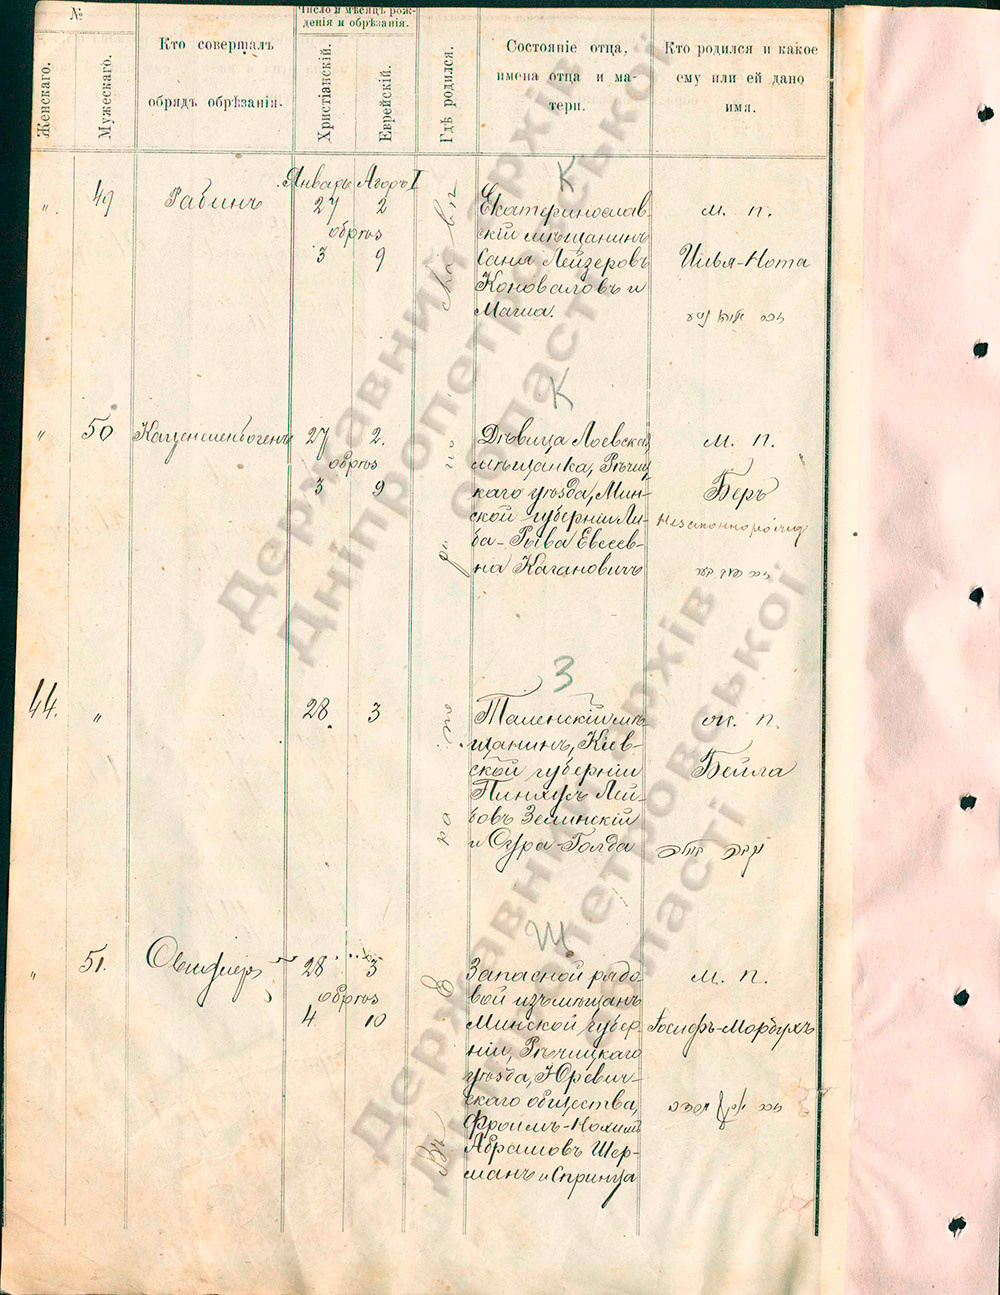 №
Женскаго.
Мужескаго.
Кто совершалъ
обрядъ обрѣзанія.
Число и мѣсяцъ рож-
денія и обрѣзанія.
Христіанскій.
Еврейскій.
Гдѣ родился.
Состояніе отца,
имена отца и ма-
тери.
Кто родился и какое
ему или ей дано
имя.
Январь Адаръ I
К
" 49 Рабинъ 27 2
обрѣз
3 9
Екатеринослав-
скій мѣщанинъ
Саня Лейзеровъ
Коноваловъ и
Маша.
м. п.
Илья-Нота
К
" 50 Каценеленбогенъ 27 2.
обрѣз
3 9
Дѣвица Лоевская
мѣщанка, Рѣчиц-
каго уѣзда, Мин-
ской губерніи Ли-
ба-Рыва Евсеев-
на Кагановичъ
м. п.
Беръ
Незаконнорожд
З
44. " 28. 3
Таленскій мѣ-
щанинъ, Кіев-
ской губерніи
Пинхусъ Лей-
бовъ Зелинскій
и Сура-Голда
ж. п.
Бейла
Ш
" 51. 28 3
обрѣз
4 10
Запасной рядо-
вой изъ мѣщанъ
Минской губер-
ніи, Рѣчицкаго
уѣзда, Юревич-
скаго общества,
Фроимъ-Нохимъ
Абрамовъ Шер-
манъ и Спринца
м. п.
Іосифъ-Мордухъ
Державний архів
Дніпропетровської
області
Державний архів
Дніпропетровської
області